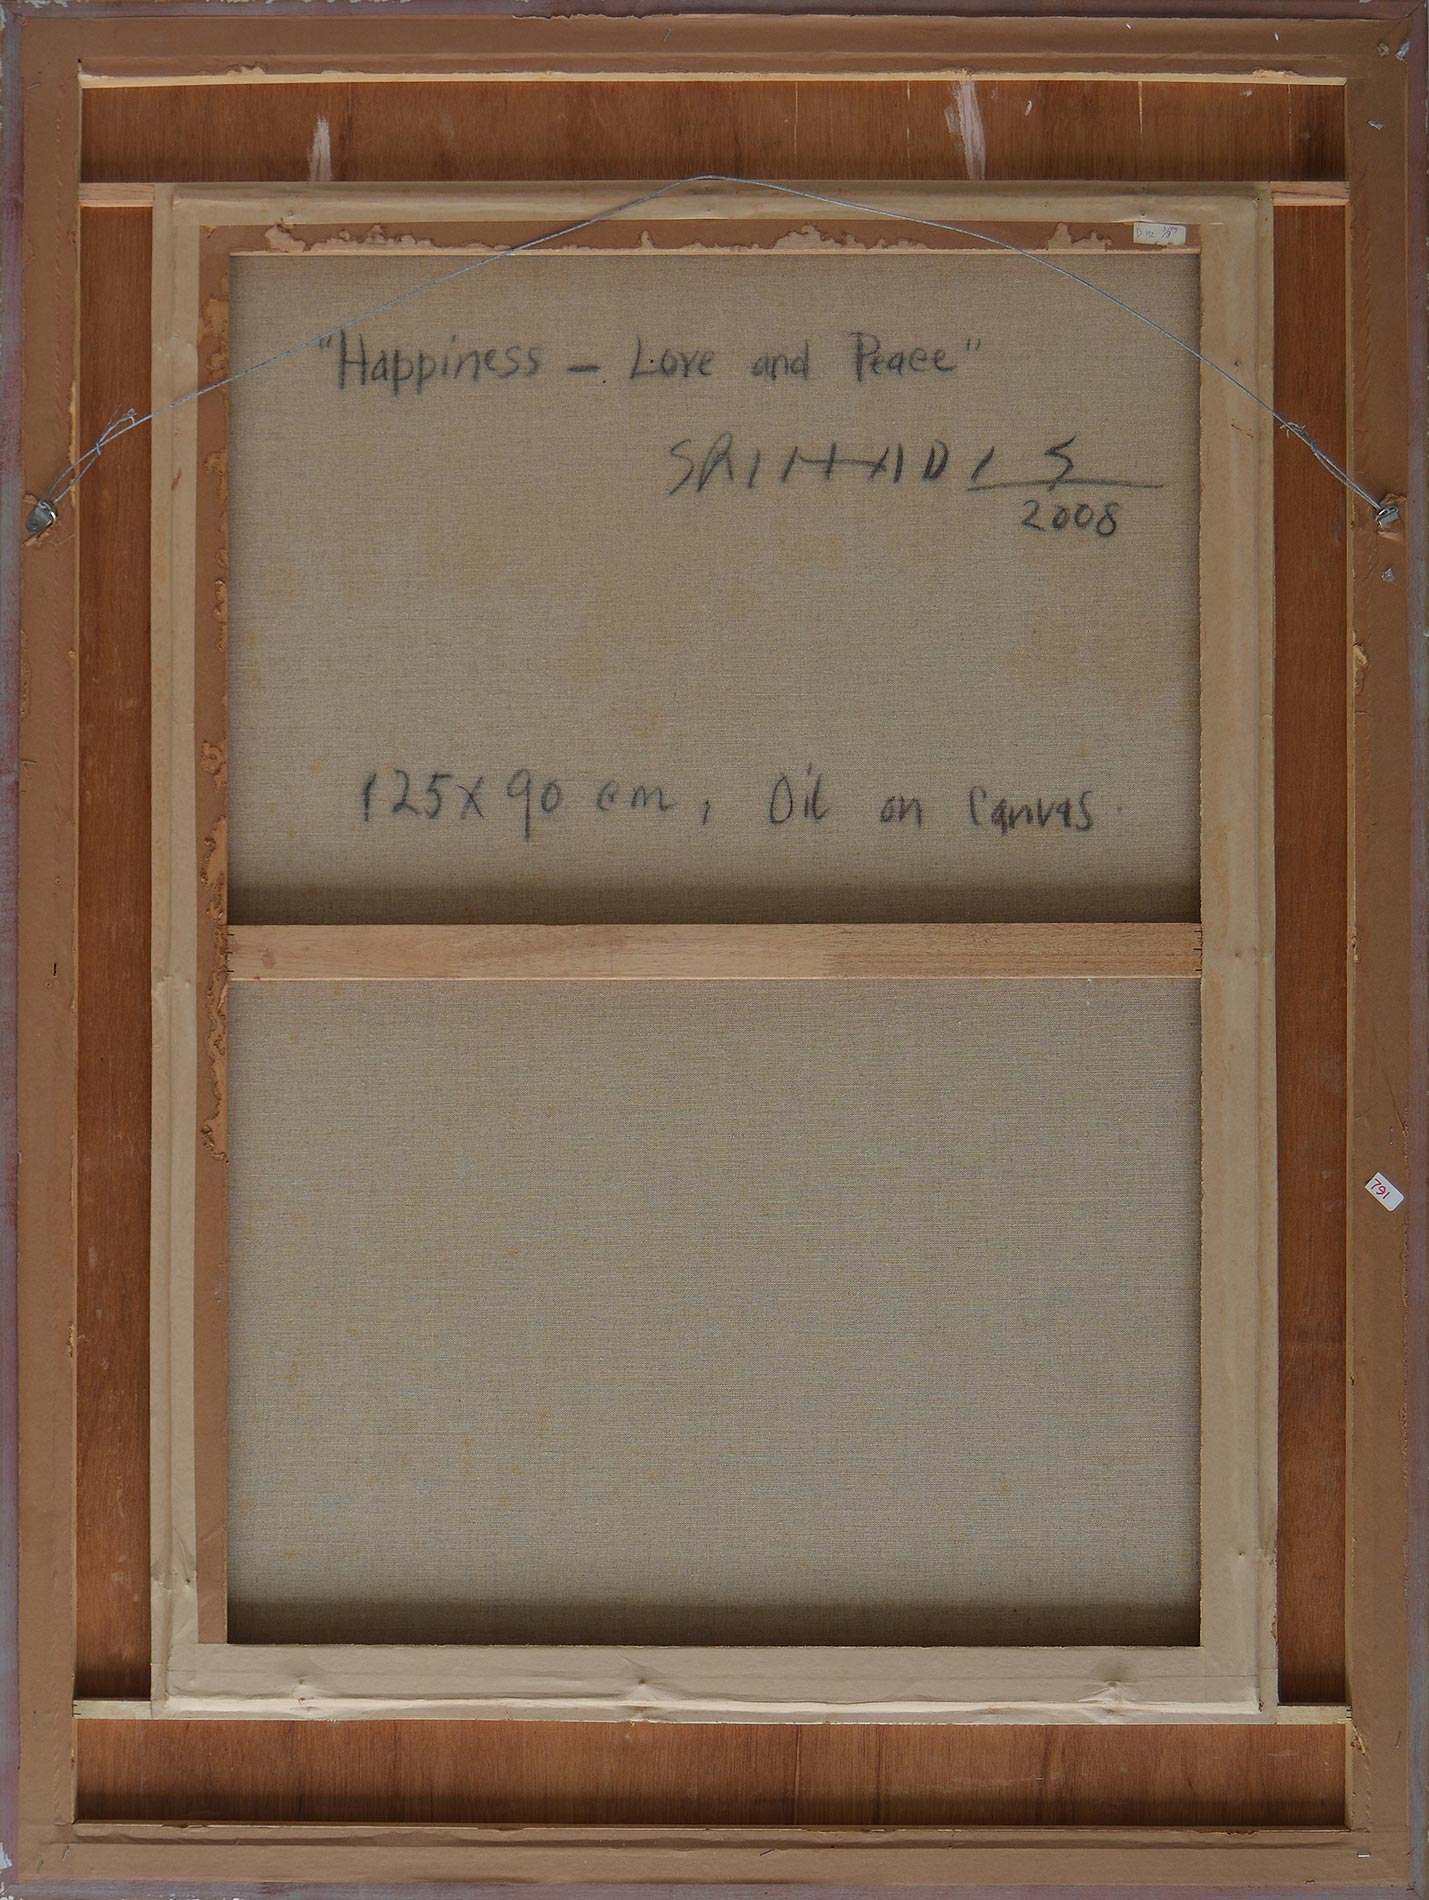 "Happiness – Love and Peace"
SRIHADI S
2008
125x90 cm, Oil on Canvas.